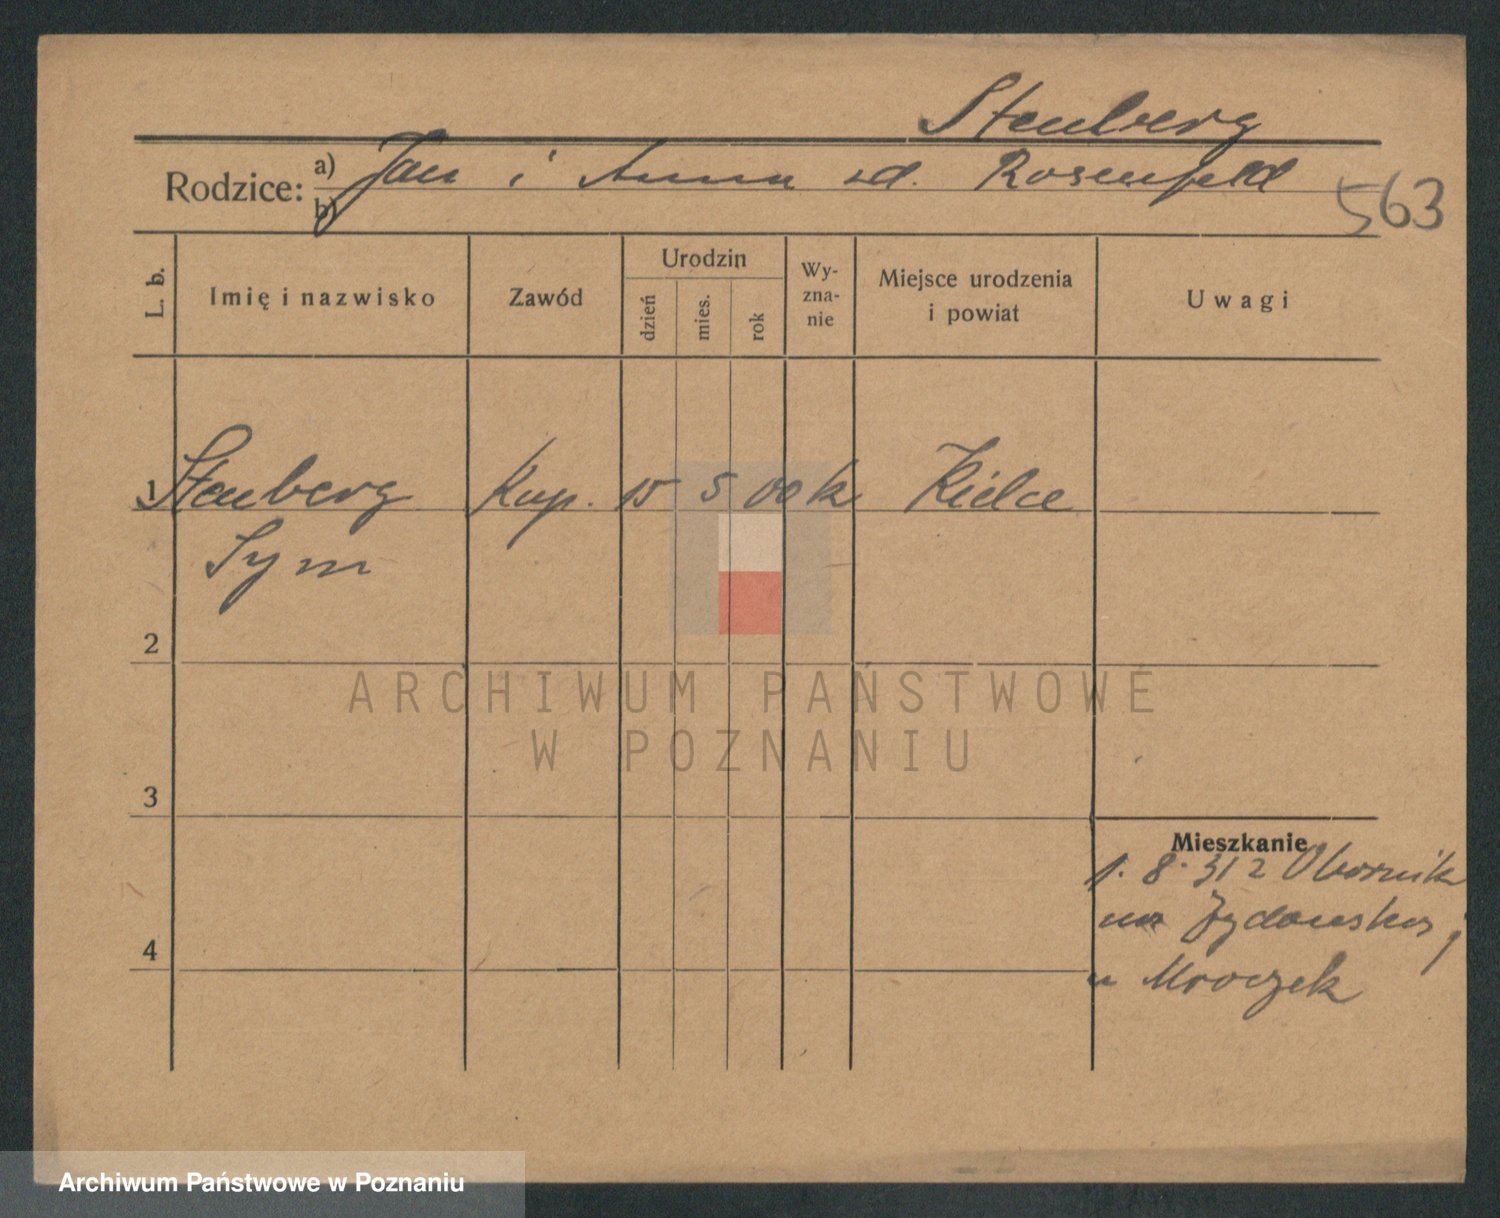 Stenberg
Rodzice: a) Jan i Anna zd. Rosenfeld
b)
563
L. b.
Imię i nazwisko
Zawód
Urodzin
dzień
mies.
rok
Wy-
zna-
nie
Miejsce urodzenia
i powiat
Uwagi
1 Stenberg Kup. 15 5 00 k Kielce
Sym
2
ARCHIWUM PAŃSTWOWE
W POZNANIU
3
Mieszkanie
1. 8. 31 z Obornik
na Żydowską
4
u Mroczek
Archiwum Państwowe w Poznaniu